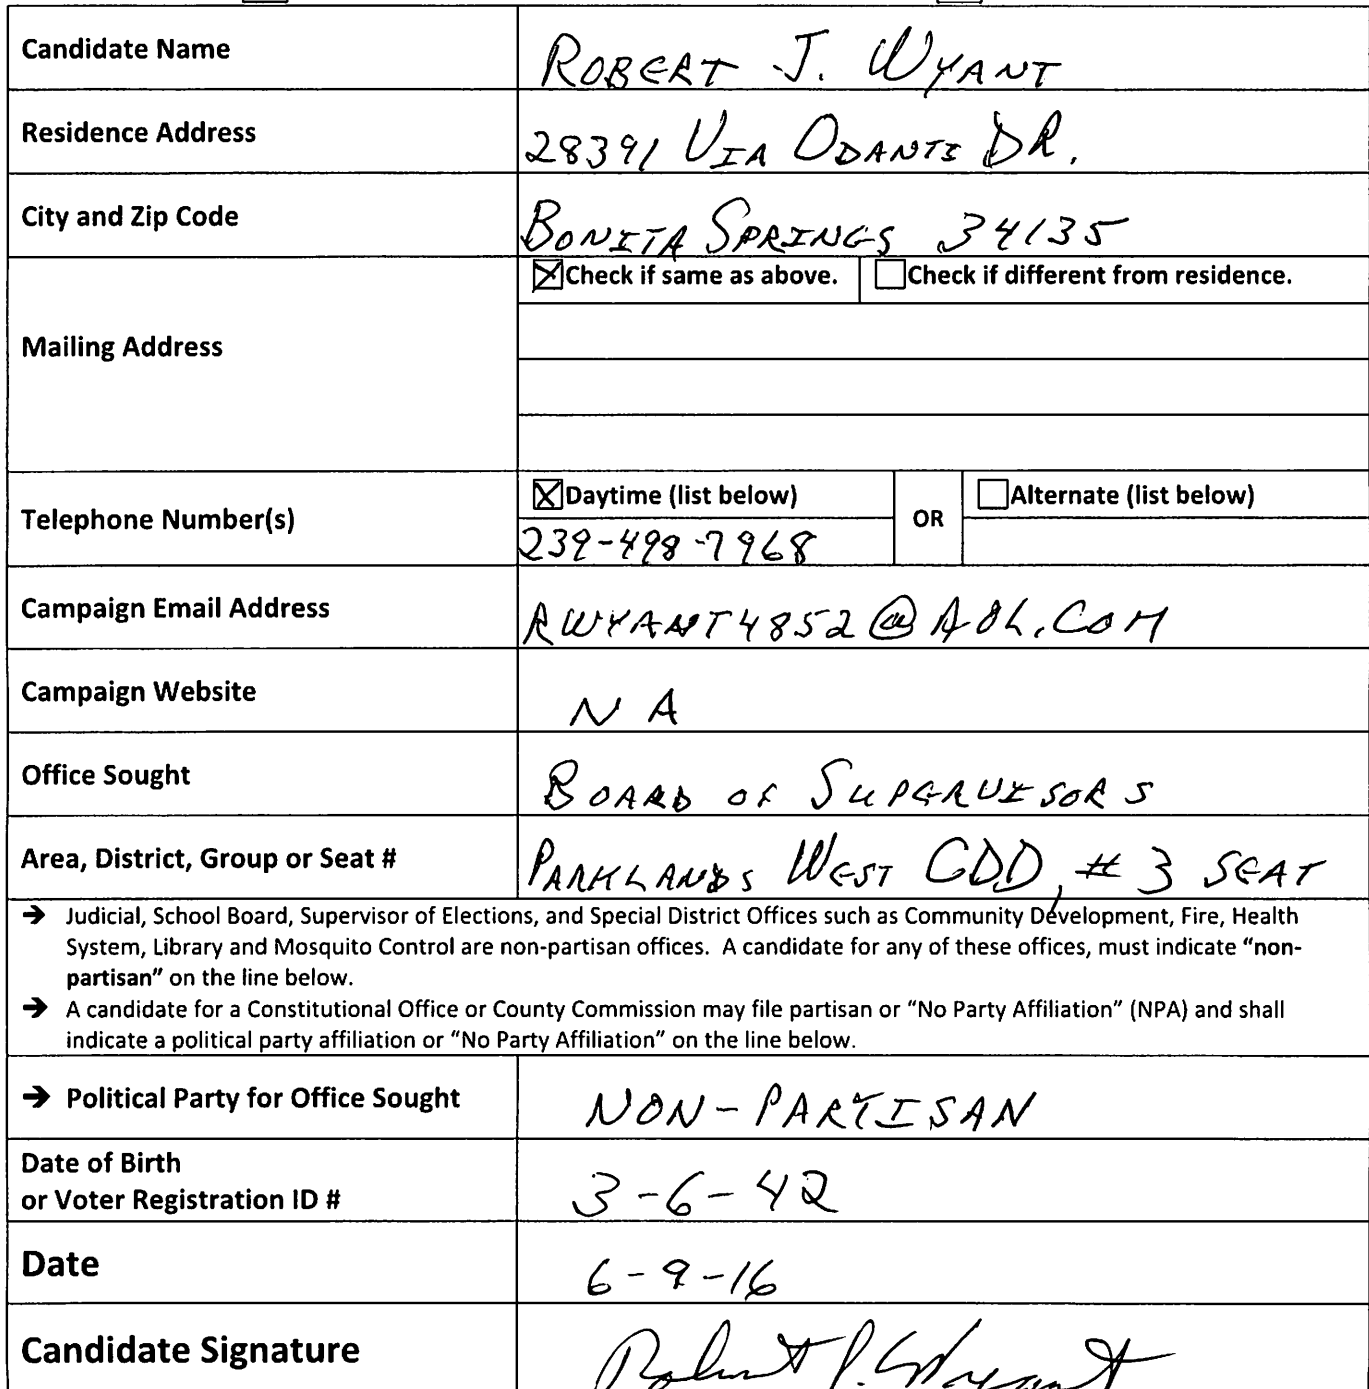 Candidate Name ROBERT J. WYANT
Residence Address 28391 VIA ODANTI DR.
City and Zip Code BONITA SPRINGS 34135
Check if same as above. Check if different from residence.
Mailing Address
Daytime (list below) OR Alternate (list below)
Telephone Number(s)
239-498-7968
Campaign Email Address RWYANT4852@AOL.COM
Campaign Website NA
Office Sought BOARD OF SUPERVISORS
Area, District, Group or Seat # PARKLANDS WEST CDD, #3 SEAT
→ Judicial, School Board, Supervisor of Elections, and Special District Offices such as Community Development, Fire, Health
System, Library and Mosquito Control are non-partisan offices. A candidate for any of these offices, must indicate "non-
partisan" on the line below.
→ A candidate for a Constitutional Office or County Commission may file partisan or "No Party Affiliation" (NPA) and shall
indicate a political party affiliation or "No Party Affiliation" on the line below.
→ Political Party for Office Sought NON-PARTISAN
Date of Birth
or Voter Registration ID # 3-6-42
Date 6-9-16
Candidate Signature Robert J. Wyant